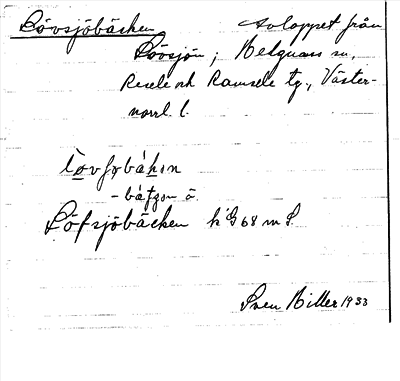 Lövsjöbäcken Avloppet från
Lövsjön; Helgums sn,
Resele och Ramsele tg., Väster-
norrl. l.
Löfsjöbäcken k'G 68 m S.
Sven Hiller 1933